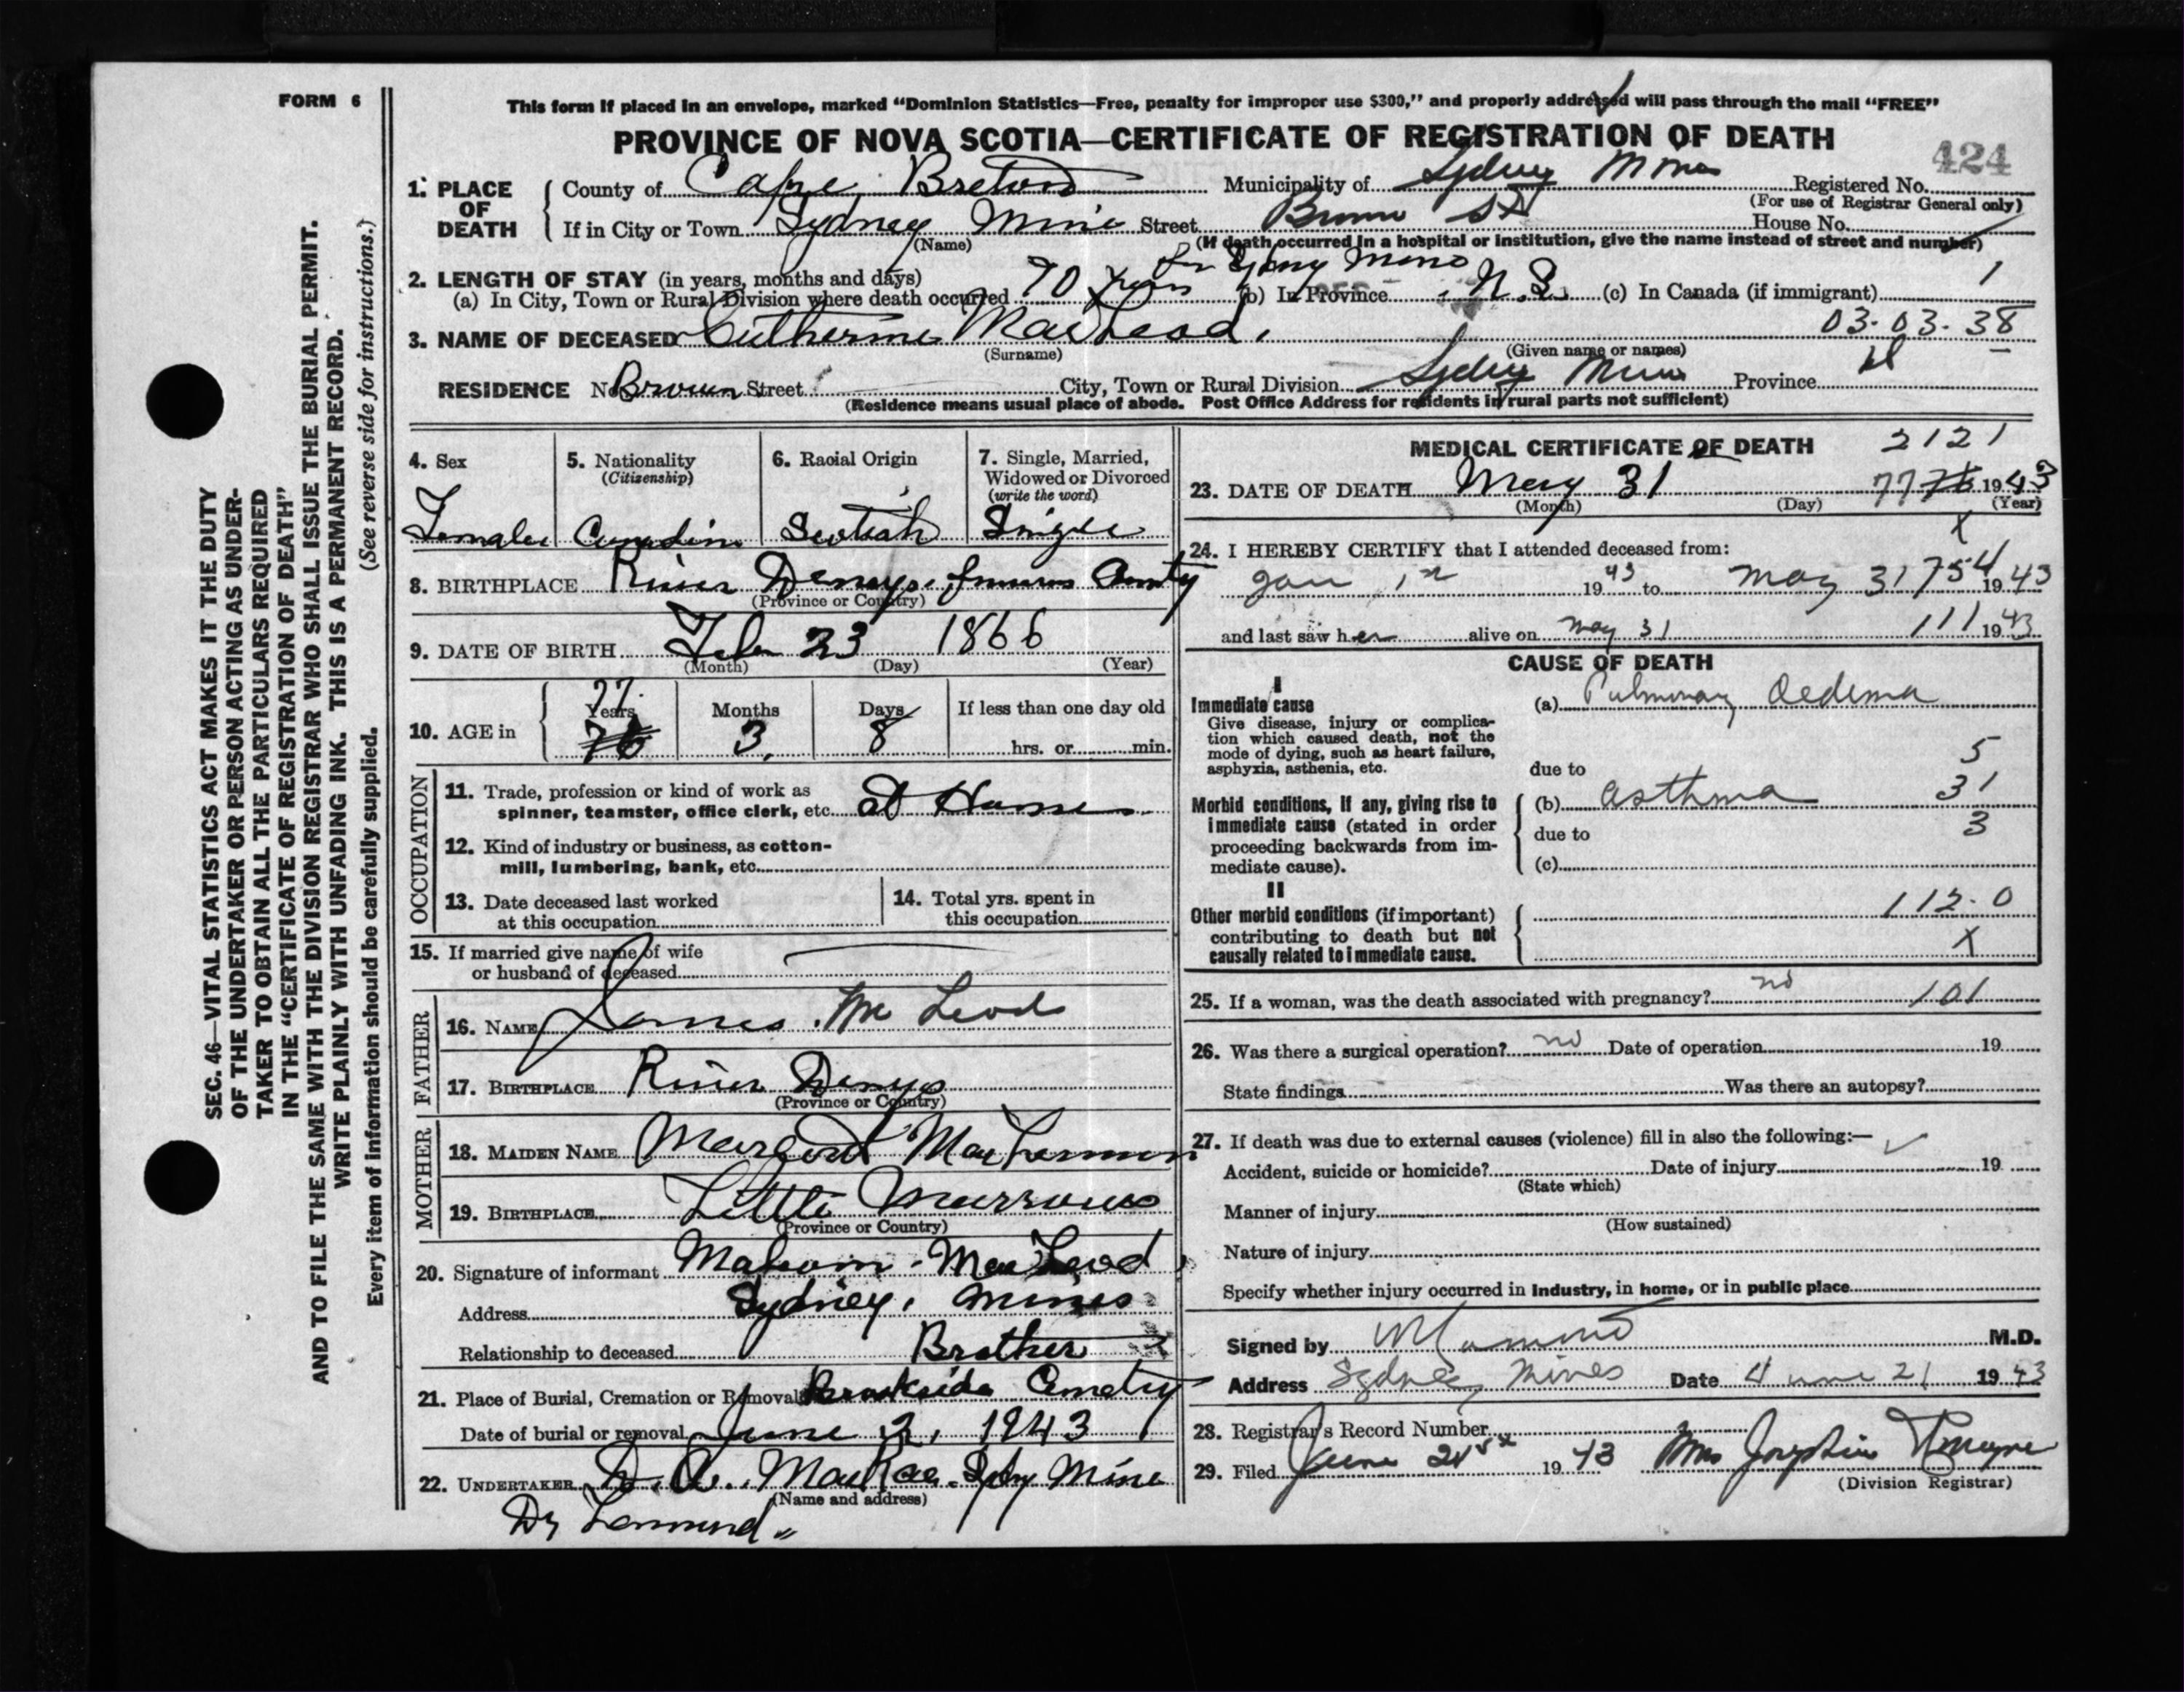 FORM 6
This form if placed in an envelope, marked “Dominion Statistics—Free, penalty for improper use $300,” and properly addressed will pass through the mail “FREE”
PROVINCE OF NOVA SCOTIA—CERTIFICATE OF REGISTRATION OF DEATH
424
1. PLACE OF DEATH County of Cape Breton Municipality of Sydney Mines Registered No.
(For use of Registrar General only)
If in City or Town Sydney Mines Street Brown St House No.
(Name) (If death occurred in a hospital or institution, give the name instead of street and number)
2. LENGTH OF STAY (in years, months and days)
(a) In City, Town or Rural Division where death occurred 70 years in Sydney Mines (b) In Province N.S. (c) In Canada (if immigrant) 1
03-03-38
3. NAME OF DECEASED Catherine MacLeod.
(Surname) (Given name or names)
RESIDENCE No Brown Street City, Town or Rural Division Sydney Mines Province
(Residence means usual place of abode. Post Office Address for residents in rural parts not sufficient)
4. Sex
Female
5. Nationality
(Citizenship)
Canadian
6. Racial Origin
Scotish
7. Single, Married,
Widowed or Divorced
(write the word)
Single
8. BIRTHPLACE River Denys, Inverness County
(Province or Country)
9. DATE OF BIRTH Feb 23 1866
(Month) (Day) (Year)
10. AGE in 77 Years 76 Months 3 Days 8 If less than one day old
hrs. or min.
OCCUPATION
11. Trade, profession or kind of work as
spinner, teamster, office clerk, etc. at Home
12. Kind of industry or business, as cotton-
mill, lumbering, bank, etc.
13. Date deceased last worked
at this occupation
14. Total yrs. spent in
this occupation
15. If married give name of wife
or husband of deceased
FATHER
16. NAME James McLeod
17. BIRTHPLACE River Denys
(Province or Country)
MOTHER
18. MAIDEN NAME Margaret MacLennan
19. BIRTHPLACE Little Narrows
(Province or Country)
20. Signature of informant Malcom MacLeod
Address Sydney, Mines
Relationship to deceased Brother
21. Place of Burial, Cremation or Removal Brookside Cemetry
Date of burial or removal June 2, 1943
22. UNDERTAKER D. A. MacRae. Sydney Mine
(Name and address)
MEDICAL CERTIFICATE OF DEATH 2121
23. DATE OF DEATH May 31 77 76 1943
(Month) (Day) (Year)
X
24. I HEREBY CERTIFY that I attended deceased from:
Jan 1st 1943 to May 31 754 1943
and last saw her alive on May 31 111 1943
CAUSE OF DEATH
I
Immediate cause
Give disease, injury or complica-
tion which caused death, not the
mode of dying, such as heart failure,
asphyxia, asthenia, etc.
(a) Pulmonary Oedema
due to 5
Morbid conditions, if any, giving rise to
immediate cause (stated in order
proceeding backwards from im-
mediate cause).
(b) Asthma 31
due to 3
(c)
II
Other morbid conditions (if important)
contributing to death but not
causally related to immediate cause.
112.0
X
25. If a woman, was the death associated with pregnancy? no 101
26. Was there a surgical operation? no Date of operation 19
State findings Was there an autopsy?
27. If death was due to external causes (violence) fill in also the following:—
Accident, suicide or homicide? Date of injury 19
(State which)
Manner of injury
(How sustained)
Nature of injury
Specify whether injury occurred in Industry, in home, or in public place
Signed by M.D.
Address Sydney Mines Date June 21 1943
28. Registrar's Record Number
29. Filed June 21st 1943 Mrs Josephine
(Division Registrar)
SEC. 46—VITAL STATISTICS ACT MAKES IT THE DUTY
OF THE UNDERTAKER OR PERSON ACTING AS UNDER-
TAKER TO OBTAIN ALL THE PARTICULARS REQUIRED
IN THE “CERTIFICATE OF REGISTRATION OF DEATH”
AND TO FILE THE SAME WITH THE DIVISION REGISTRAR WHO SHALL ISSUE THE BURIAL PERMIT.
WRITE PLAINLY WITH UNFADING INK. THIS IS A PERMANENT RECORD.
Every item of information should be carefully supplied. (See reverse side for instructions.)